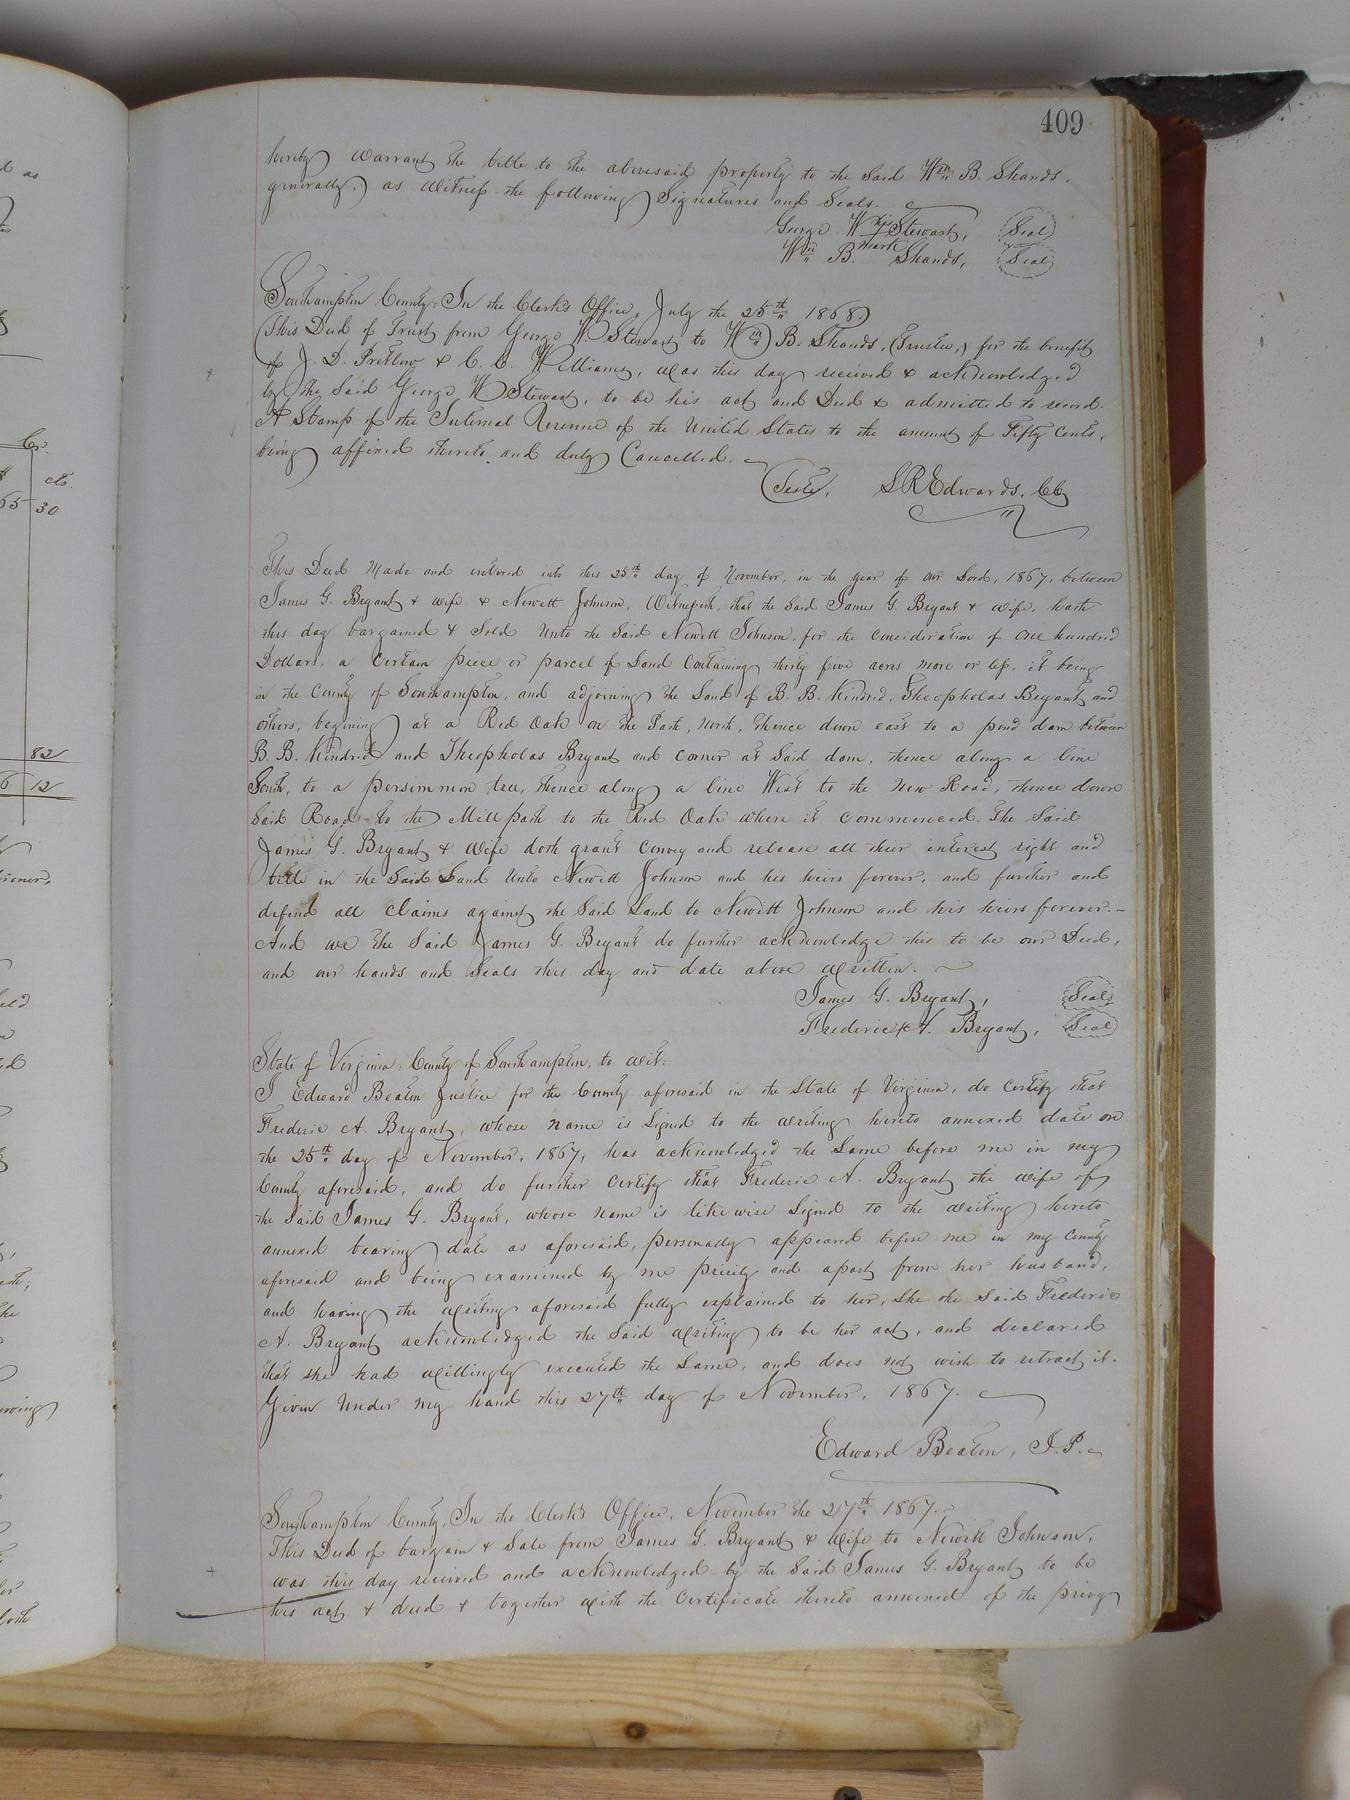 409
hereby warrant the title to the abovesaid property to the said Wm B. Shands,
generally, as witness the following Signatures and Seals.
George W his Stewart, Seal
mark
Wm B. Shands, Seal
Southampton County: In the Clerk's Office, July the 25th 1868.
This Deed of Trust from George W. Stewart to Wm B. Shands, (Trustee,) for the benefit
of J. D. Pretlow & C. C. Williams, was this day received & acknowledged
by the said George W Stewart, to be his act and Deed & admitted to record.
A Stamp of the Internal Revenue of the United States to the amount of Fifty Cents,
being affixed thereto and duly Cancelled.
Teste, L R Edwards, CC
This Deed Made and entered into this 25th day of November, in the year of our Lord, 1867, between
James G. Bryant & wife & Newitt Johnson, Witnesseth, that the Said James G. Bryant & wife, hath
this day bargained & Sold Unto the Said Newitt Johnson, for the consideration of one hundred
Dollars, a certain piece or parcel of Land Containing thirty five acres more or less, it being
in the County of Southampton, and adjoining the Land of B. B. Kindred, Theopholas Bryant and
others, begining at a Red Oak on the Path, North, thence down east to a pond dam between
B. B. Kindred and Theopholas Bryant and corner at Said dam, thence along a line
South, to a persimmon tree, thence along a line West to the New Road, thence down
Said Road to the Mill path to the Red Oak where it commenced. The Said
James G. Bryant & Wife doth grant Convey and release all their interest right and
title in the Said Land Unto Newitt Johnson and his heirs forever, and further and
defend all Claims against the Said Land to Newitt Johnson and his heirs forever.-
And we the Said James G. Bryant do further acknowledge this to be our Deed,
and our hands and Seals this day and date above written.
James G. Bryant, Seal
Frederick A. Bryant, Seal
State of Virginia, County of Southampton, to wit:
I Edward Beaton Justice for the County aforesaid in the State of Virginia, do certify that
Frederic A. Bryant, whose name is Signed to the writing hereto annexed date on
the 25th day of November, 1867, has acknowledged the Same before me in my
County aforesaid, and do further Certify that Frederic A. Bryant the wife of
the Said James G. Bryant, whose name is likewise Signed to the writing hereto
annexed bearing date as aforesaid, personally appeared before me in my County
aforesaid and being examined by me privily and apart from her husband,
and having the writing aforesaid fully explained to her, She the Said Frederic
A. Bryant acknowledged the Said writing to be her act, and declared
that she had willingly executed the Same, and does not wish to retract it.
Given Under my hand this 27th day of November, 1867.
Edward Beaton, J.P.
Southampton County, In the Clerk's Office, November the 27th 1867.
This Deed of bargain & Sale from James G. Bryant & Wife to Newitt Johnson,
was this day received and acknowledged by the Said James G. Bryant to be
his act & deed & together with the Certificate thereto annexed of the privy